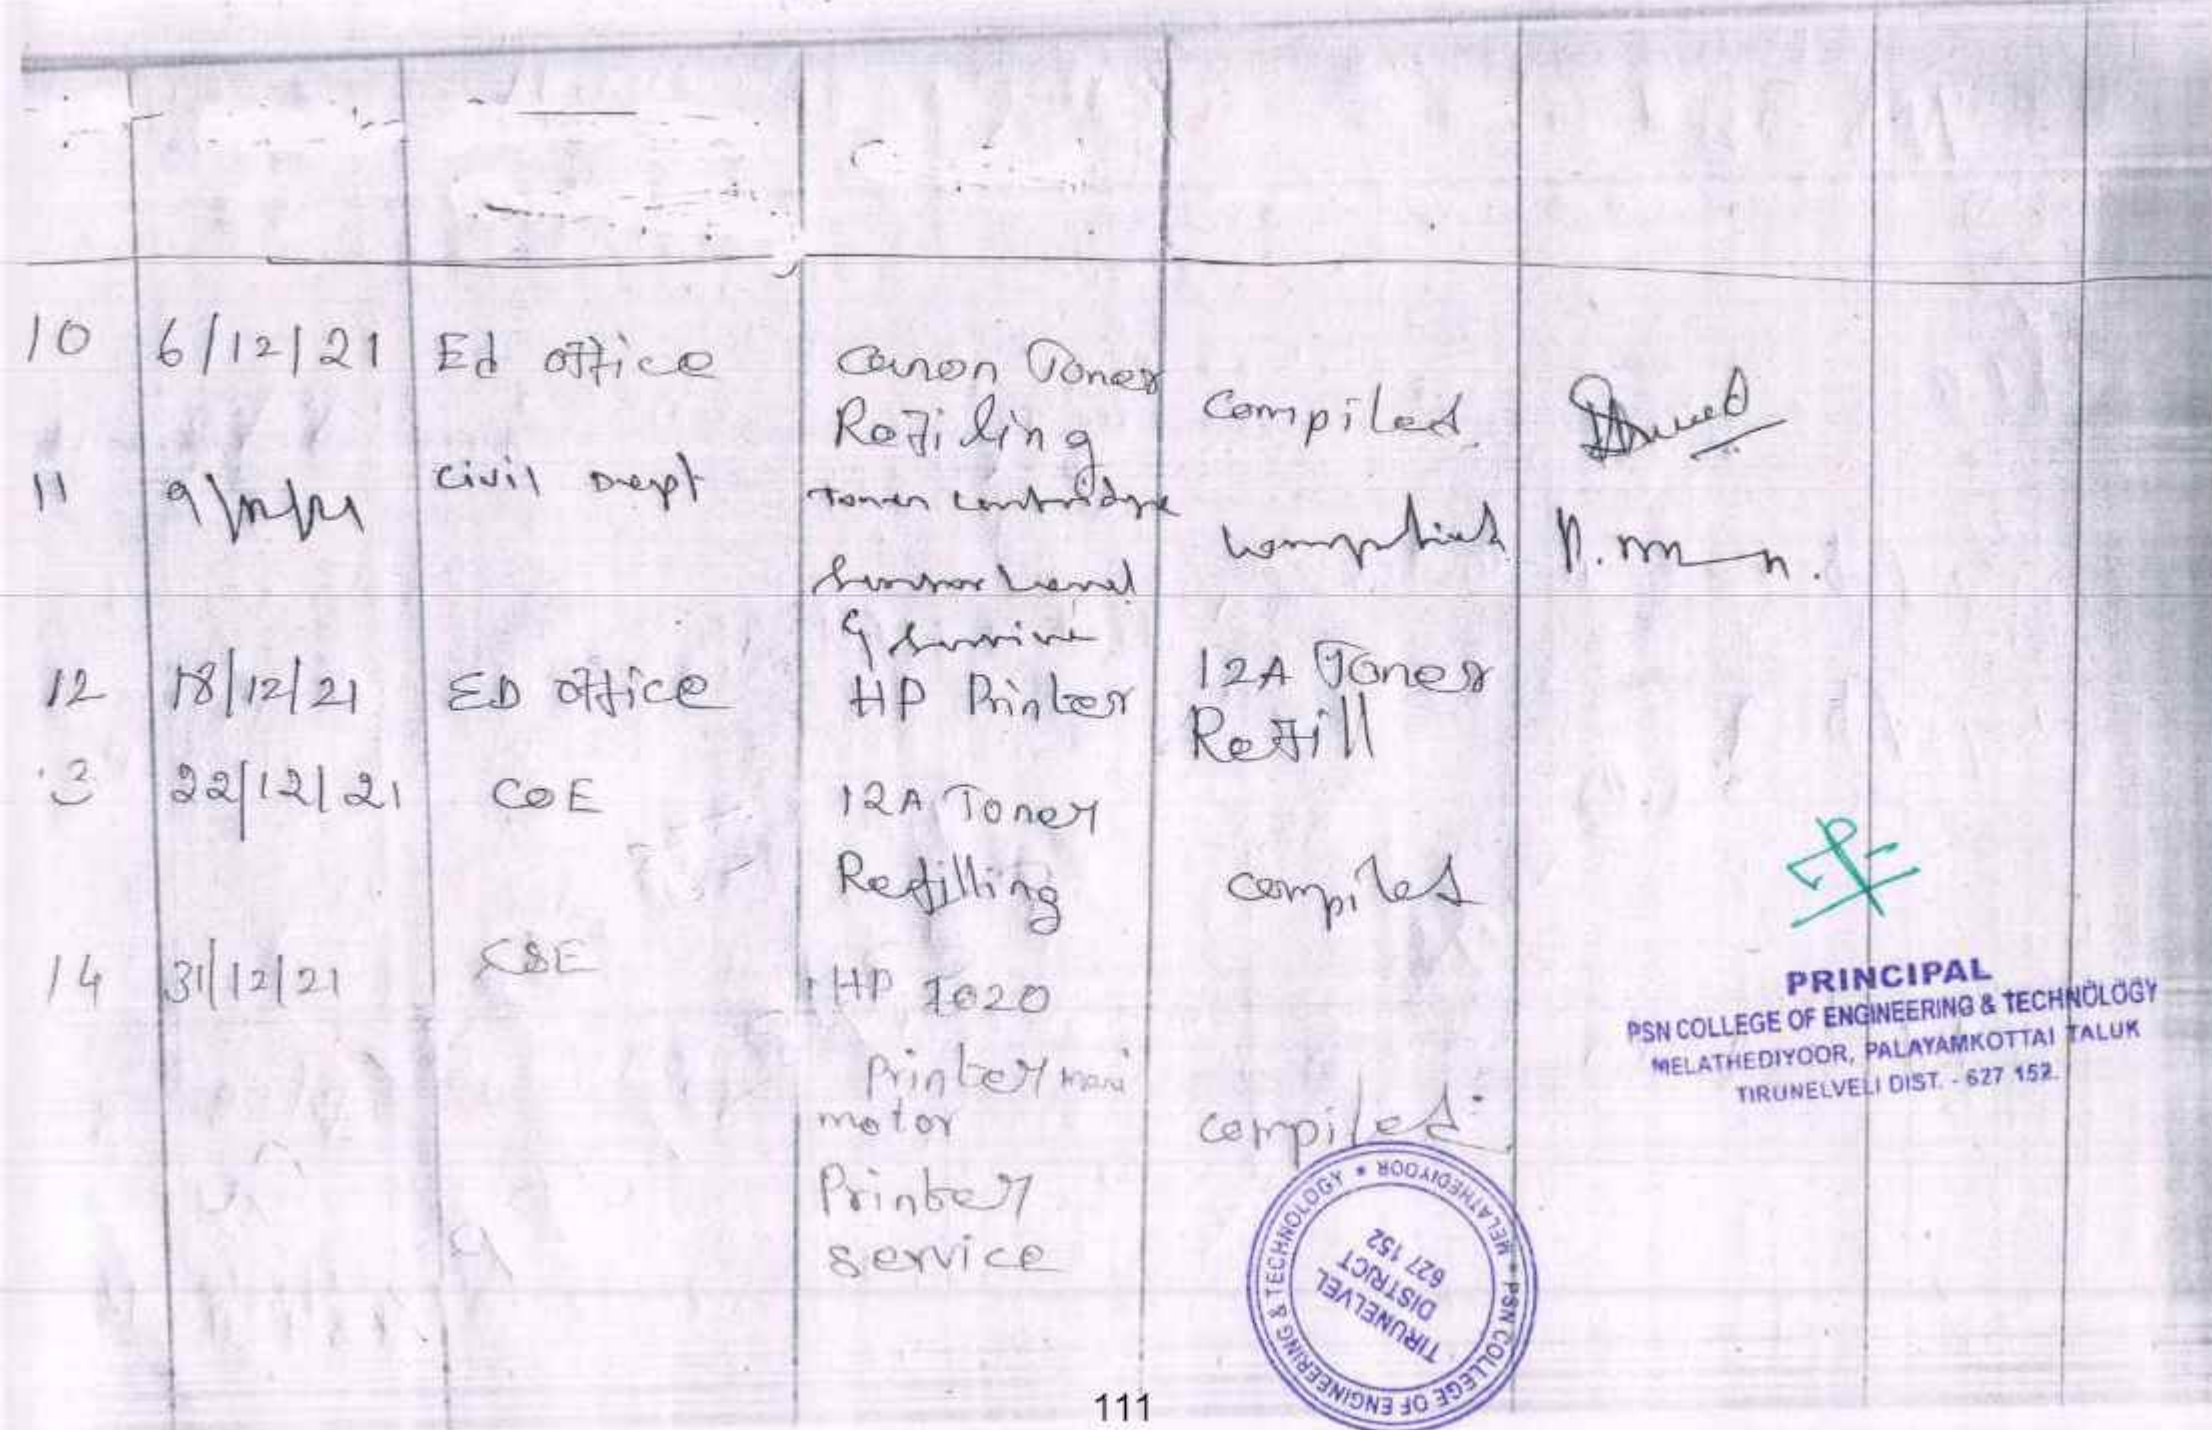 10 6/12/21 Ed office Canon Toner
Refiling compiled
11 9/12/21 Civil Dept Toner Cartridge
& Service
12 18/12/21 ED office HP Printer 12A Toner
Refill
3 22/12/21 COE 12A Toner
Refilling compiled
14 31/12/21 CSE HP 1020
Printer
motor compiled
Printer
service
PRINCIPAL
PSN COLLEGE OF ENGINEERING & TECHNOLOGY
MELATHEDIYOOR, PALAYAMKOTTAI TALUK
TIRUNELVELI DIST. - 627 152.
PSN COLLEGE OF ENGINEERING & TECHNOLOGY * MELATHEDIYOOR *
TIRUNELVEL
DISTRICT
627 152
111